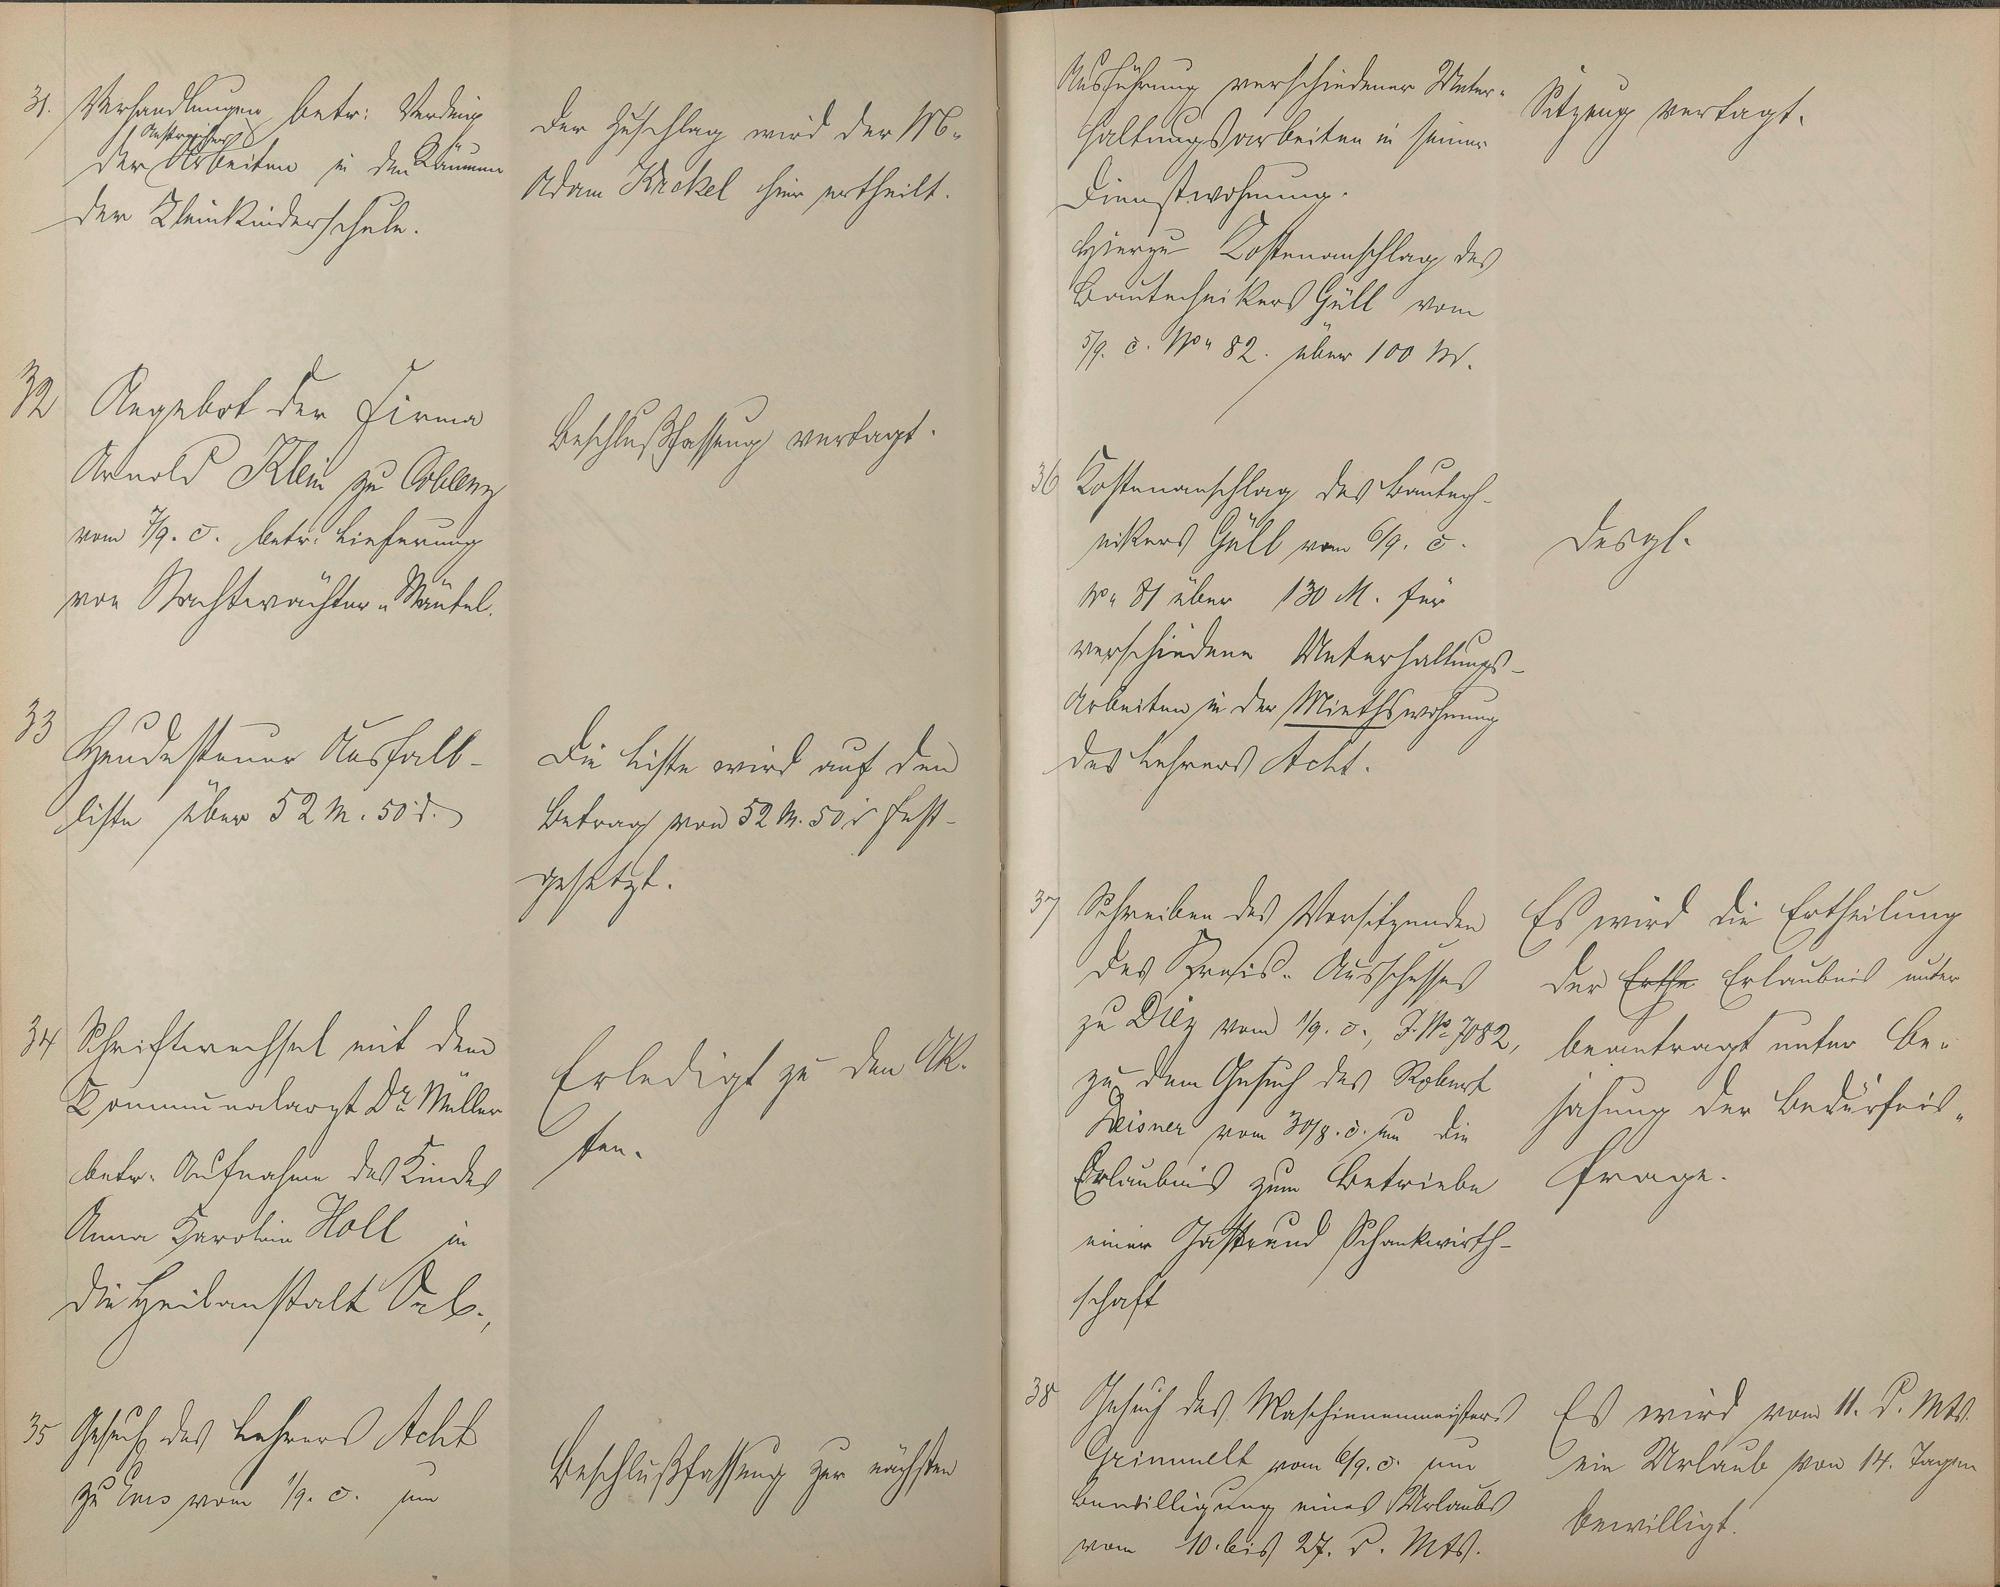 31. Verhandlungen betr: Verding
der Anstreicher Arbeiten in den Räumen
der Kleinkinderschule.
Der Zuschlag wird der M-
Adam Krekel hier ertheilt.
32 Angebot der Firma
Arnold Klein zu Coblenz
vom 7/9. c. betr: Lieferung
von Nachtwächter-Mäntel.
Beschlußfassung vertagt.
33 Hundesteuer Ausfall-
liste über 52 M. 50 d.
Die Liste wird auf den
Betrag von 52 M. 50 d fest-
gesetzt.
34 Schriftwechsel mit dem
Kommunalarzt Dr. Müller
betr. Aufnahme des Kindes
Anna Karolina Holl in
die Heilanstalt Orb.,
Erledigt zu den Ak-
ten.
35 Gesuch des Lehrers Acht
zu Ems vom 1/9. c. um
Beschlußfassung zur nächsten
Ausführung verschiedener Unter-
haltungsarbeiten in seiner
Dienstwohnung.
Hierzu Kostenanschlag des
Bautechnikers Güll vom
5/9. c. No 82. über 100 M.
Sitzung vertagt.
36 Kostenanschlag des Bautech-
nikers Güll vom 6/9. c.
No 81 über 130 M. für
verschiedene Unterhaltungs-
Arbeiten in der Miethswohnung
des Lehrers Acht.
Desgl.
37 Schreiben des Vorsitzenden
des Kreis-Ausschusses
zu Diez vom 1/9. c., J. No 7082,
zu dem Gesuch des Robert
Deisner vom 30/8. c. um die
Erlaubnis zum Betriebe
einer Gast- und Schankwirth-
schaft
Es wird die Ertheilung
der Erthe Erlaubnis unter
beantragt unter Be-
jahung der Bedürfnis-
frage.
38 Gesuch des Maschinenmeisters
Grimmelt vom 6/9. c. um
Bewilligung eines Urlaubs
vom 10. bis 27. d. Mts.
Es wird vom 11. d. Mts.
ein Urlaub von 14. Tagen
bewilligt.